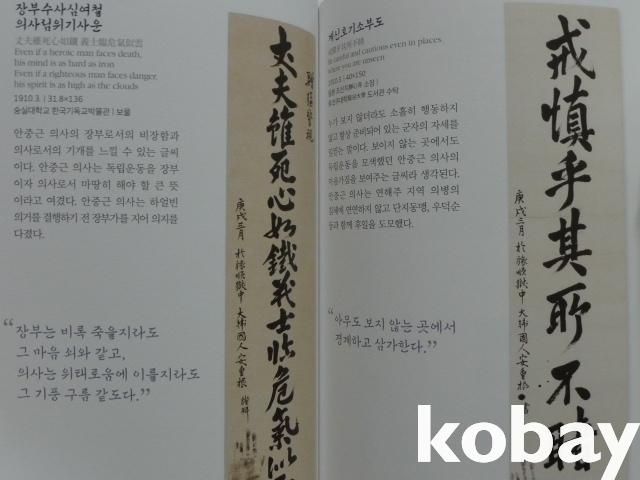 장부수사심여철
의사림위기사운
丈夫雖死心如鐵 義士臨危氣似雲
Even if a heroic man faces death,
his mind is as hard as iron
Even if a righteous man faces danger,
his spirit is as high as the clouds
1910.3. | 31.8×136
숭실대학교 한국기독교박물관 | 보물
안중근 의사의 장부로서의 비장함과
의사로서의 기개를 느낄 수 있는 글씨
이다. 안중근 의사는 독립운동을 장부
이자 의사로서 마땅히 해야 할 큰 뜻
이라고 여겼다. 안중근 의사는 하얼빈
의거를 결행하기 전 장부가를 지어 의지를
다졌다.
“장부는 비록 죽을지라도
그 마음 쇠와 같고,
의사는 위태로움에 이를지라도
그 기풍 구름 같도다.”
丈夫雖死心如鐵義士臨危氣似
庚戌三月 於旅順獄中 大韓國人 安重根 謹拜
계신호기소부도
Be careful and cautious even in places
where you are unseen
1910.3. | 40×150
누가 보지 않더라도 소홀히 행동하지
않고 항상 준비되어 있는 군자의 자세를
일컫는 말이다. 보이지 않는 곳에서도
독립운동을 모색했던 안중근 의사의
마음가짐을 보여주는 글씨라 생각된다.
안중근 의사는 연해주 지역 의병의
실패에 연연하지 않고 단지동맹, 우덕순
등과 함께 후일을 도모했다.
“아무도 보지 않는 곳에서
경계하고 삼가한다.”
戒愼乎其所不睹
庚戌三月 於旅順獄中 大韓國人 安重根 書
kobay